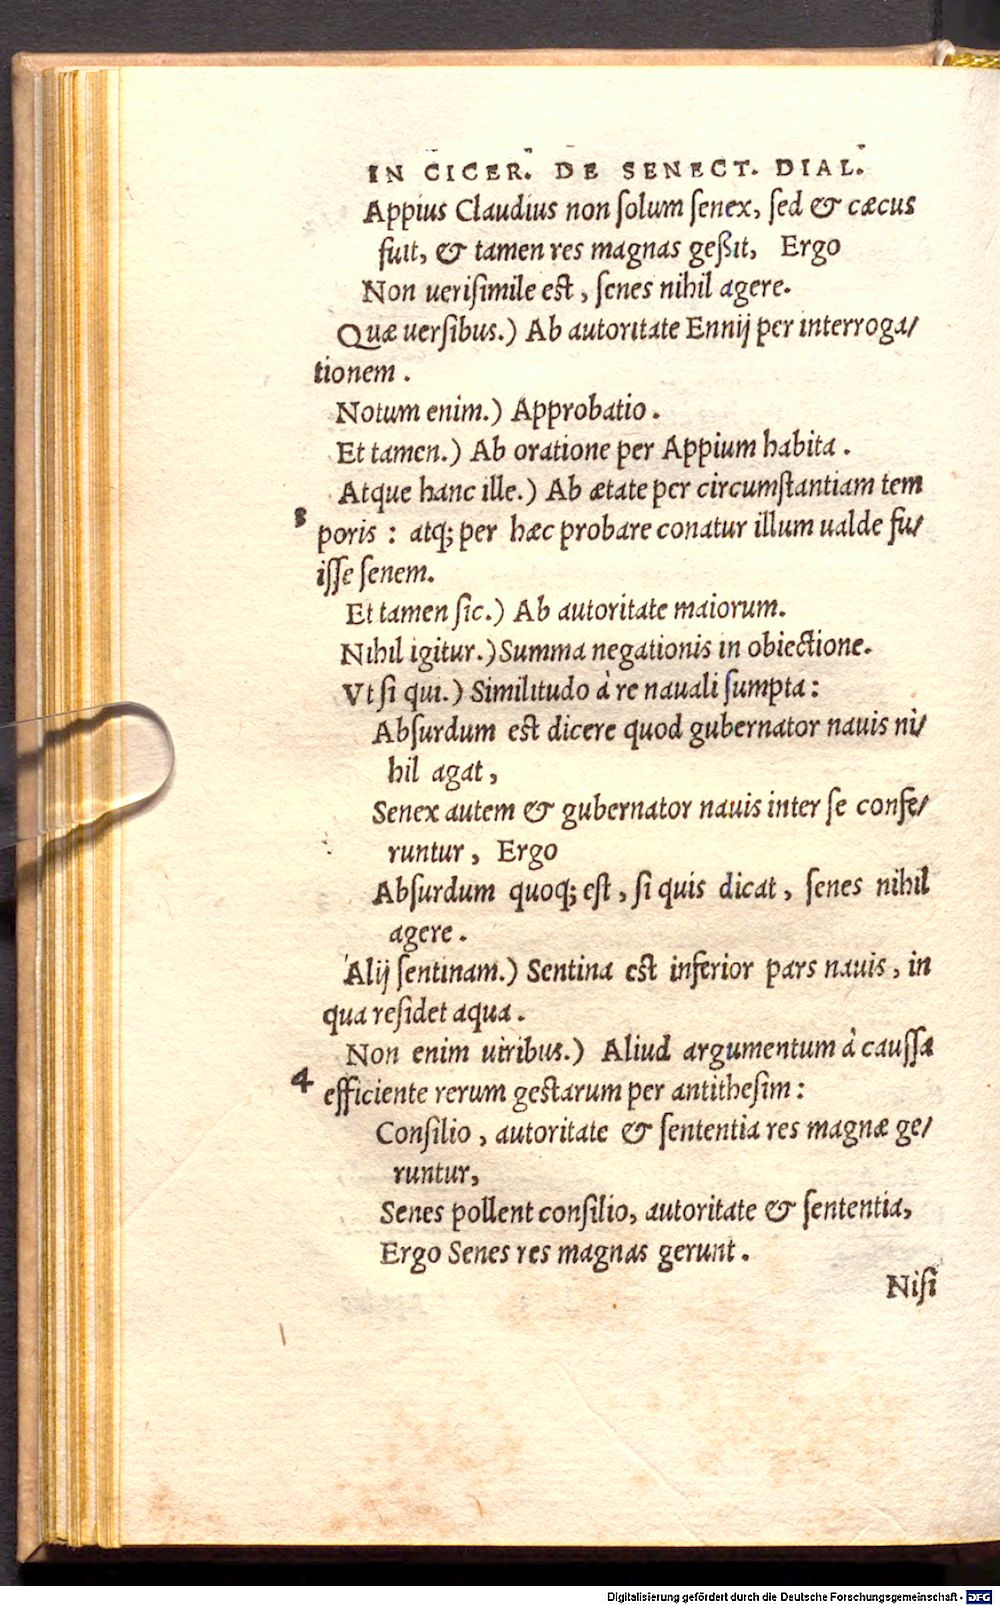 IN CICER. DE SENECT. DIAL.
Appius Claudius non ſolum ſenex, ſed & cæcus
fuit, & tamen res magnas geßit, Ergo
Non ueriſimile est, ſenes nihil agere.
Quæ uerſibus.) Ab autoritate Ennij per interroga/
tionem.
Notum enim.) Approbatio.
Et tamen.) Ab oratione per Appium habita.
Atque hanc ille.) Ab ætate per circumſtantiam tem
poris : atq; per hæc probare conatur illum ualde fu/
iſſe ſenem.
Et tamen ſic.) Ab autoritate maiorum.
Nihil igitur.) Summa negationis in obiectione.
Vt ſi qui.) Similitudo à re nauali ſumpta:
Abſurdum est dicere quod gubernator nauis ni/
hil agat,
Senex autem & gubernator nauis inter ſe confe/
runtur, Ergo
Abſurdum quoq; eſt, ſi quis dicat, ſenes nihil
agere.
Alij ſentinam.) Sentina est inferior pars nauis, in
qua reſidet aqua.
Non enim uiribus.) Aliud argumentum à cauſſa
4 efficiente rerum gestarum per antitheſim:
Conſilio, autoritate & ſententia res magnæ ge/
runtur,
Senes pollent conſilio, autoritate & ſententia,
Ergo Senes res magnas gerunt.
Niſi
Digitalisierung gefördert durch die Deutsche Forschungsgemeinschaft - DFG